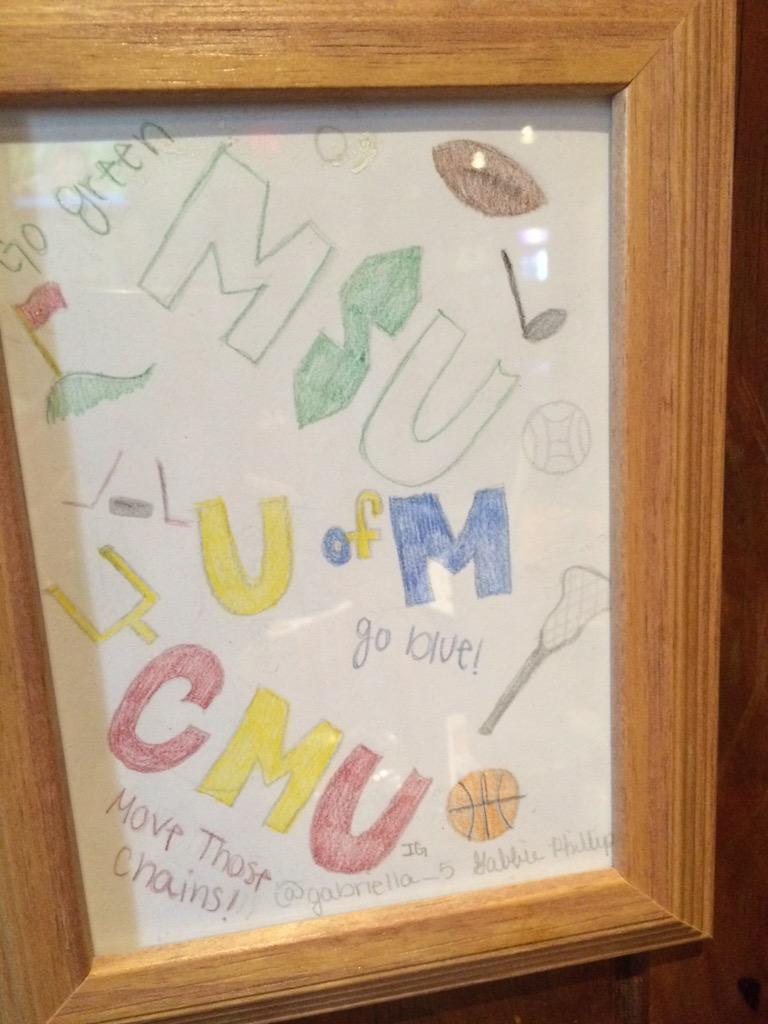 Go green
MSU
U of M
go blue!
CMU
Move Those
Chains!
IG
@gabriella_5 Gabbie Phillip